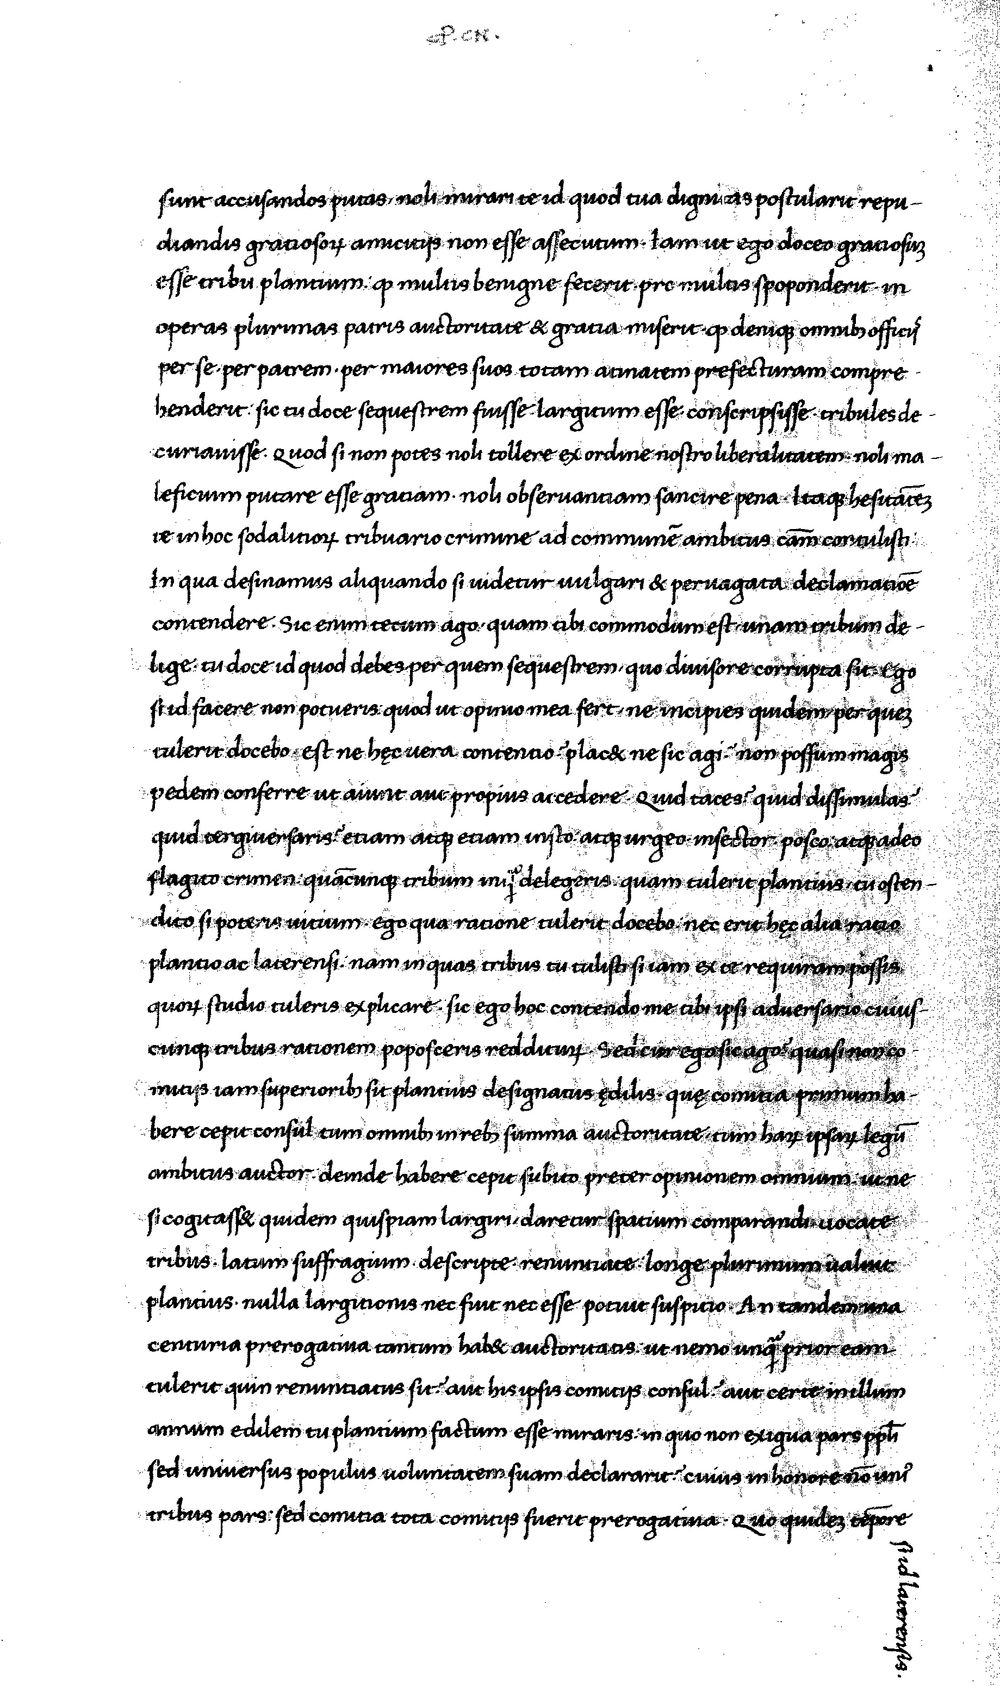 .P. CN.
sunt accusandos putas. noli mirari te id quod tua dignitas postularit repu-
diandis gratiosoꝝ amicitijs non esse assecutum. Iam ut ego doceo gratiosuꝫ
esse tribu plancium: ꝙ multis benigne fecerit. pro multis spoponderit. in
operas plurimas patris auctoritate & gratia miserit. ꝙ deniqꝫ omnibꝫ officijs
per se. per patrem. per maiores suos totam atinatem prefecturam compre
henderit: sic tu doce sequestrem fuisse. largitum esse. conscripsisse. tribules de-
curiauisse. Quod si non potes noli tollere ex ordine nostro liberalitatem. noli ma-
leficium putare esse gratiam. noli obseruantiam sancire pena. Itaqꝫ hesitāteꝫ
te in hoc sodalitioꝝ tribuario crimine ad communē ambitus cām contulisti:
In qua desinamus aliquando si uidetur uulgari & peruagata declamatiōe
contendere. Sic enim tecum ago. quam tibi commodum est. unam tribum de-
lige. tu doce id quod debes per quem sequestrem. quo diuisore corrupta sit. Ego
si id facere non potueris quod ut opinio mea fert. ne incipies quidem per queꝫ
tulerit docebo. est ne hęc uera contentio? plac& ne sic agi? non possum magis
pedem conferre ut aiunt aut propius accedere. Quid taces? quid dissimulas?
quid tergiuersaris? etiam atqꝫ etiam insto atqꝫ urgeo. insector. posco. atqꝫ adeo
flagito crimen. quācunqꝫ tribum inꝗͣ delegeris. quam tulerit plancius. tu osten-
dito si poteris uitium. ego qua ratione tulerit docebo. nec erit hęc alia ratio
plancio ac laterensi. nam in quas tribus tu tulisti si iam ex te requiram possis
quoꝝ studio tuleris explicare. sic ego hoc contendo me tibi ipsi aduersario cuius-
cunqꝫ tribus rationem poposceris redditurꝫ. Sed cur ego sic ago? quasi non co-
mitijs iam superioribꝫ sit plancius designatus ędilis. quę comitia primum ha-
bere cepit consul tum omnibꝫ in rebꝫ summa auctoritate. tum haꝝ ipsaꝝ legū
ambitus auctor. deinde habere cepit subito preter opinionem omnium. ut ne
si cogitass& quidem quispiam largiri. daretur spatium comparandi. uocate
tribus. latum suffragium. descripte. renuntiate. longe plurimum ualuit
plancius. nulla largitionis nec fuit nec esse potuit suspitio. An tandem una
centuria prerogatiua tantum hab& auctoritatis. ut nemo unꝗͣ prior eam
tulerit quin renuntiatus sit? aut his ipsis comitijs consul? aut certe in illum
annum edilem tu plancium factum esse miraris. in quo non exigua pars ppłi
sed uniuersus populus uoluntatem suam declararit? cuius in honore nō uniꝰ
tribus pars. sed comitia tota comitijs fuerit prerogatiua. Quo quideꝫ tēpore
si id laterensis.